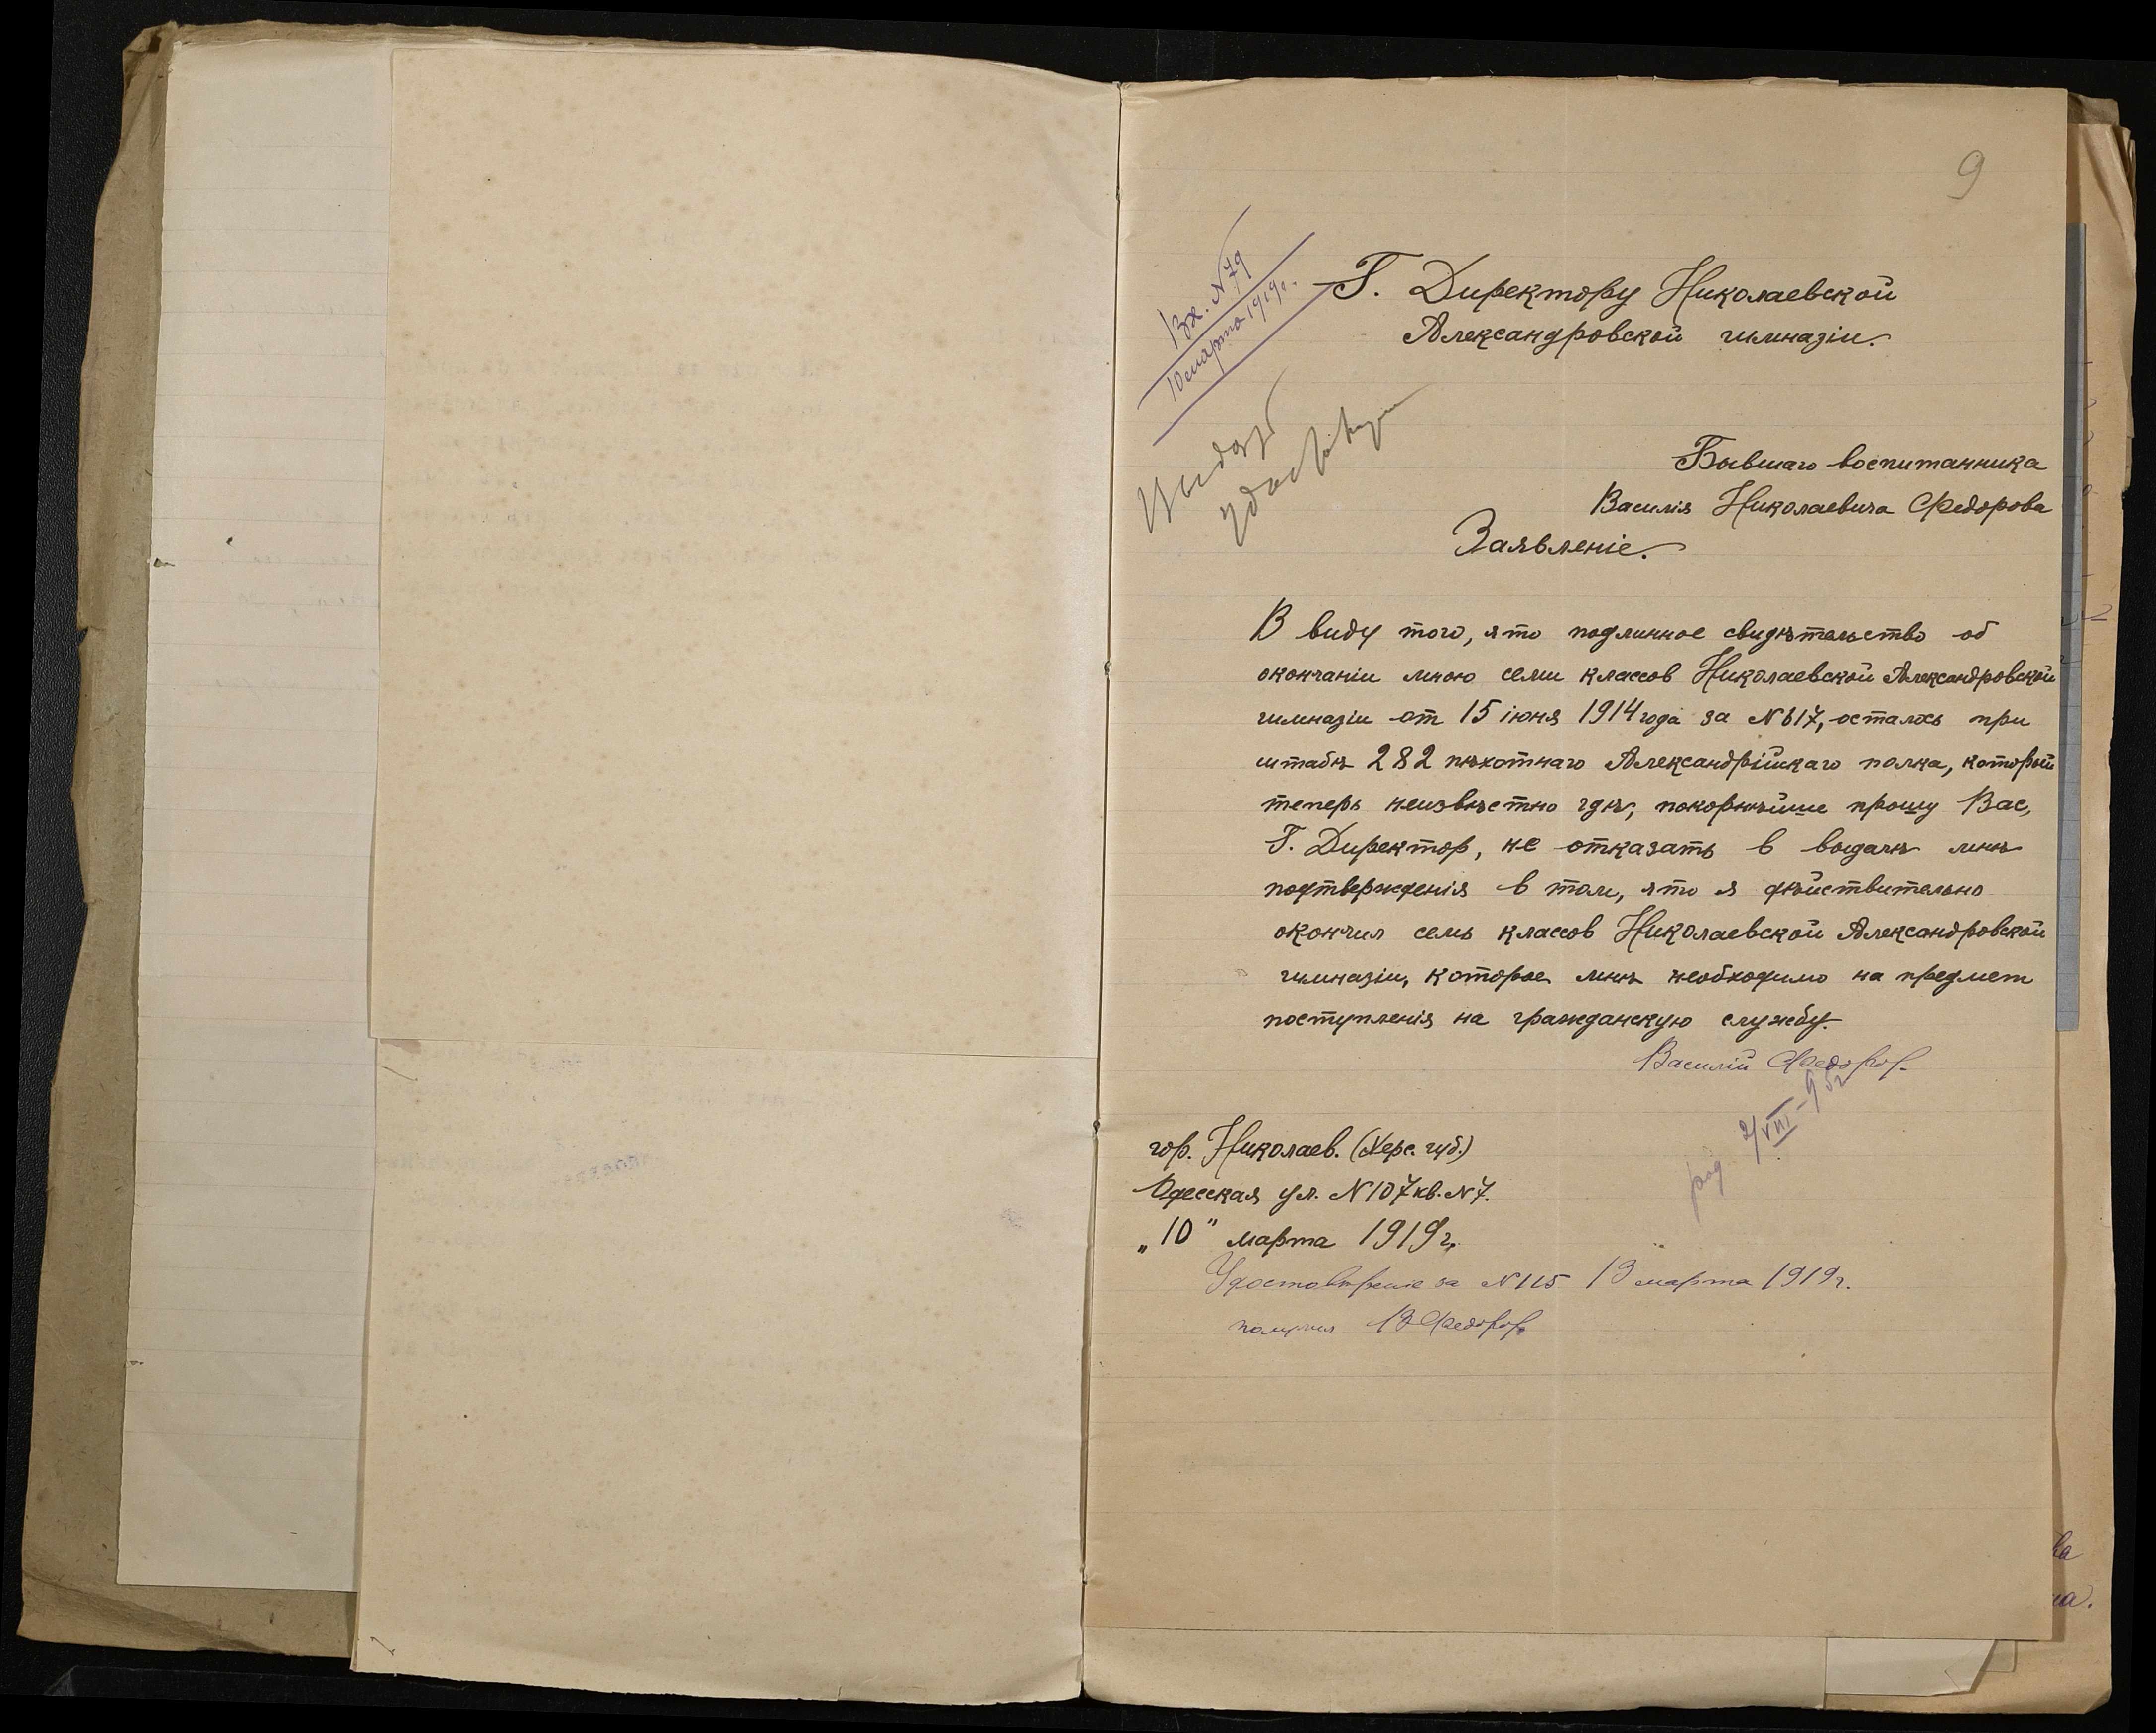 9
Вх. N 79
10 марта 1919 г.
Г. Директору Николаевской
Александровской гимназіи.
Выдать
Бывшаго воспитанника
Василія Николаевича Федорова
Заявленіе.
В виду того, что подлинное свидѣтельство об
окончаніи мною семи классов Николаевской Александровской
гимназіи от 15 іюня 1914 года за N 617, осталось при
штабѣ 282 пѣхотнаго Александрійскаго полка, который
теперь неизвѣстно гдѣ, покорнѣйше прошу Вас,
Г. Директор, не отказать в выдачѣ мнѣ
подтвержденія в том, что я дѣйствительно
окончил семь классов Николаевской Александровской
гимназіи, которое мнѣ необходимо на предмет
поступленія на гражданскую службу.
Василій Федоров.
гор. Николаев. (Херс. губ.)
Одесская ул. N 107 кв. N 7.
„10" марта 1919 г.
Удостовѣреніе за N 115 13 марта 1919 г.
получил В Федоров